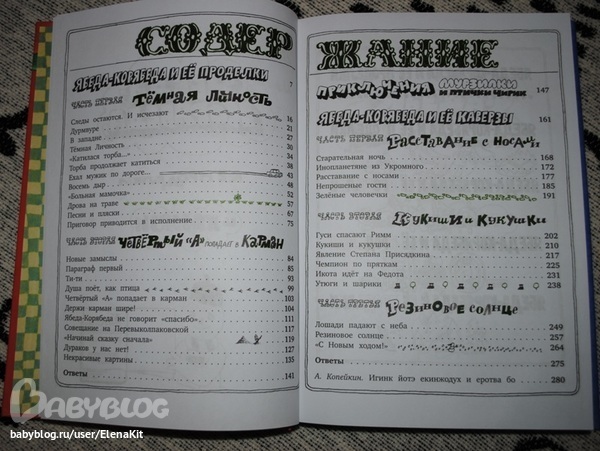 СОДЕР
ЯБЕДА-КОРЯБЕДА И ЕЁ ПРОДЕЛКИ 7
ЧАСТЬ ПЕРВАЯ ТЁМНАЯ ЛИЧНОСТЬ
Следы остаются. И исчезают 16
Дуринуре 21
В западне 27
Тёмная Личность 30
«Катилася торба...» 34
Торба продолжает катиться 38
Ехал мужик по дороге... 43
Восемь дыр 48
«Больная мамочка» 52
Дрова на траве 57
Песни и пляски 65
Приговор приводится в исполнение 75
ЧАСТЬ ВТОРАЯ ЧЕТВЁРТЫЙ «А» ПОПАДАЕТ В КАРМАН
Новые замыслы 84
Параграф первый 91
Ти-ти 95
Душа поёт, как птица 99
Четвёртый «А» попадает в карман 103
Держи карман шире! 110
Ябеда-Корябеда не говорит «спасибо» 111
Совещание на Перевыколпаковской 119
«Начинай сказку сначала» 121
Дураков у нас нет! 127
Некрасивые картины 135
Ответы 141
ЖАНИЕ
ПРИКЛЮЧЕНИЯ МУРЗИЛКИ И ПТИЧКИ ЧИРИК 147
ЯБЕДА-КОРЯБЕДА И ЕЁ КАВЕРЗЫ 161
ЧАСТЬ ПЕРВАЯ РАССТАВАНИЕ С НОСАМИ
Старательная ночь 168
Инопланетяне из Укромного 172
Расставание с носами 177
Непрошеные гости 185
Зелёные человечки 191
ЧАСТЬ ВТОРАЯ КУКИШИ И КУКУШКИ
Гуси спасают Римм 202
Кукиши и кукушки 210
Явление Степана Присядкина 219
Чемпион по пряткам 225
Икота идёт на Федота 232
Утюги и шарики 238
ЧАСТЬ ТРЕТЬЯ РЕЗИНОВОЕ СОЛНЦЕ
Лошади падают с неба 249
Резиновое солнце 257
«С Новым ходом!» 264
Ответы 275
А. Копейкин. Игинк йотэ екинжодух и еротва бо 280
BABYBLOG
babyblog.ru/user/ElenaKit